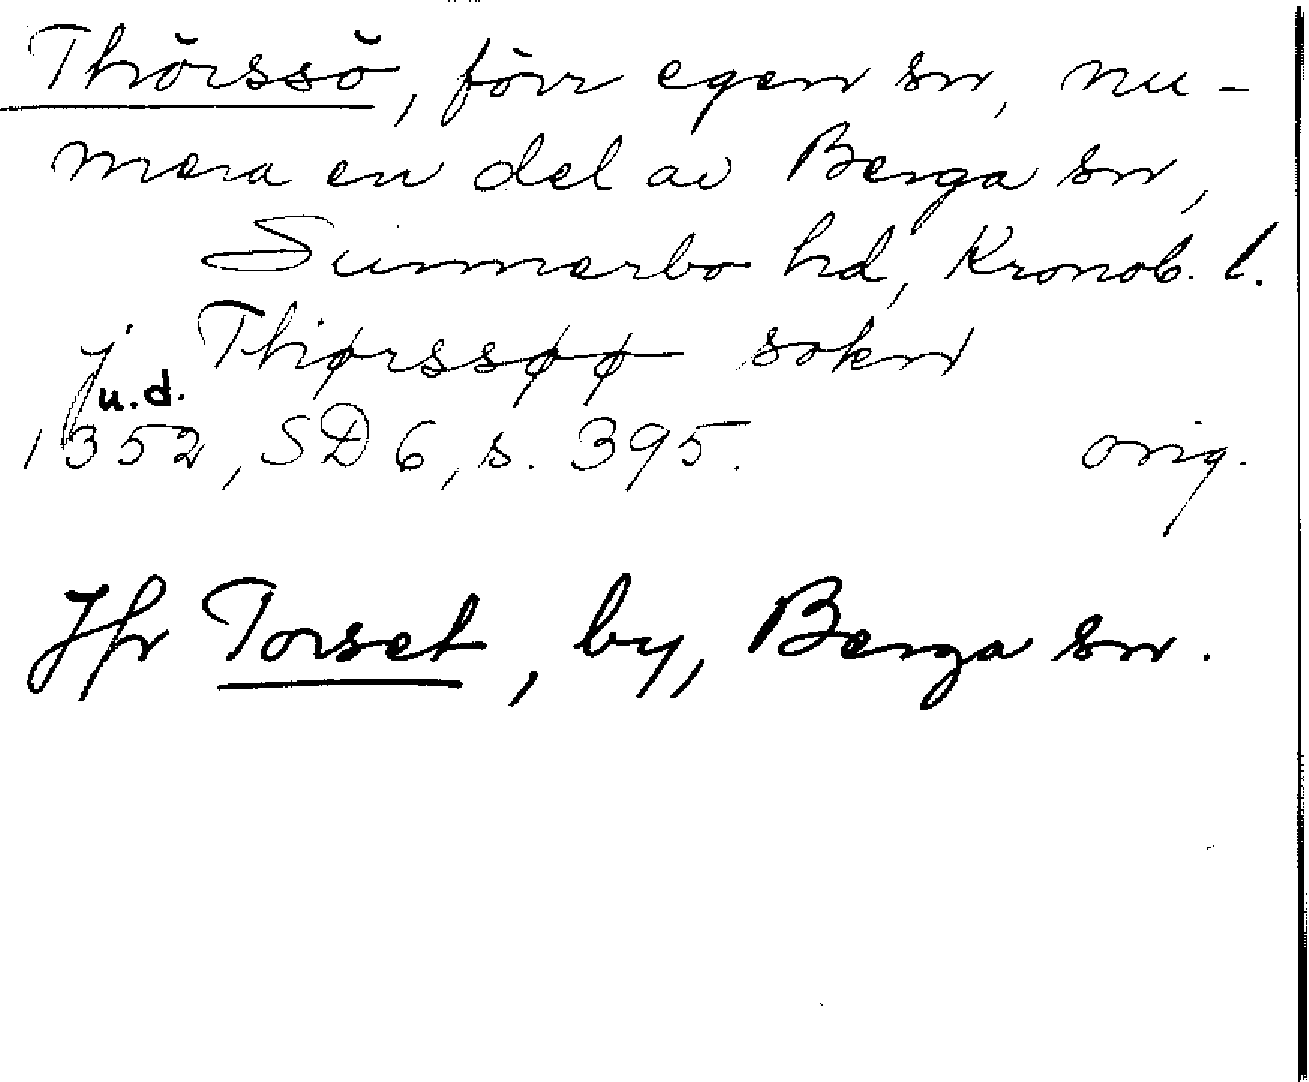 Thörssö, förr egen sn, nu-
mera en del av Berga sn,
Sunnerbo hd, Kronob. l.
j Thiørssøø sokn
u.d.
1352, SD 6, s. 395. orig.
Jfr Torset, by, Berga sn.